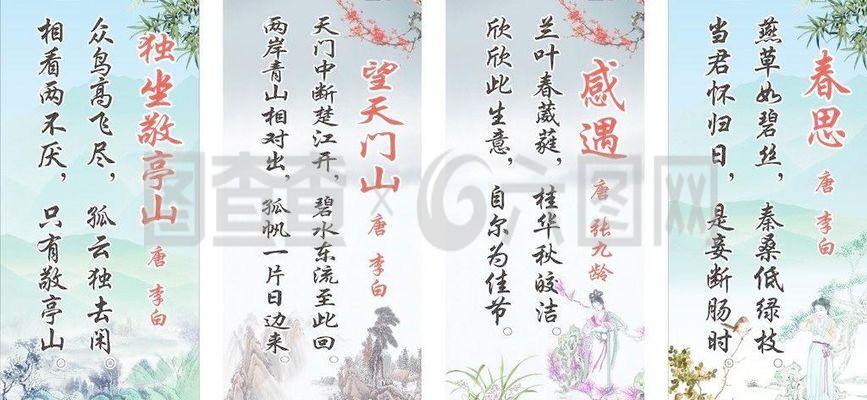 独坐敬亭山
唐 李白
众鸟高飞尽，孤云独去闲。
相看两不厌，只有敬亭山。
望天门山
唐 李白
天门中断楚江开，碧水东流至此回。
两岸青山相对出，孤帆一片日边来。
感遇
唐 张九龄
兰叶春葳蕤，桂华秋皎洁。
欣欣此生意，自尔为佳节。
春思
唐 李白
燕草如碧丝，秦桑低绿枝。
当君怀归日，是妾断肠时。
图查查×六图网